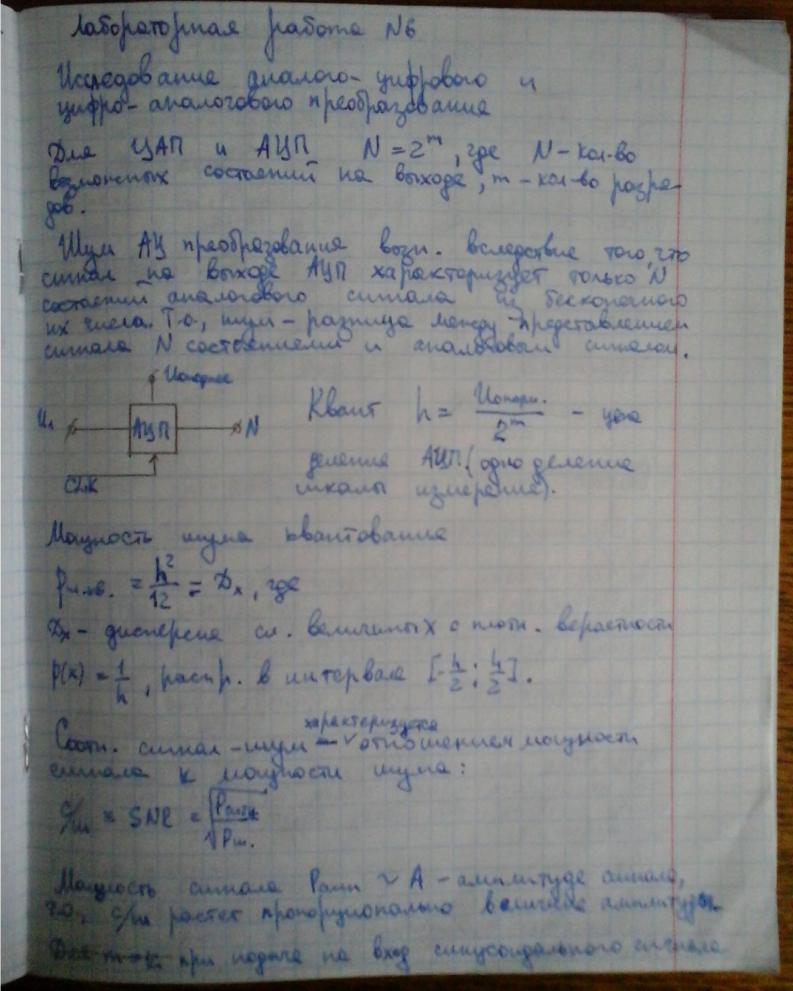 Лабораторная работа №6
Исследование аналого-цифрового и
цифро-аналогового преобразование
Для ЦАП и АЦП N = 2^m, где N - кол-во
возможных состояний на выходе, m - кол-во разря-
дов.
Шум АЦ преобразования возн. вследствие того, что
сигнал на выходе АЦП характеризует только N
состояний аналогового сигнала из бесконечного
их числа. Т.о., шум - разница между представлением
сигнала N состояниями и аналоговым сигналом.
Uопорное
U₁ АЦП N
CLK
Квант h = Uопорн. / 2^m - цена
деления АЦП (одно деление
шкалы измерение).
Мощность шума квантования
Pш.кв. = h²/12 = Dx, где
Dx - дисперсия сл. величины x с плотн. верастности
P(x) = 1/h, распр. в интервале [-h/2; h/2].
характеризуется
Соотн. сигнал-шум отношением мощности
сигнала к мощности шума:
с/ш = SNR = √(Pсигн / Pш.)
Мощность сигнала Pсигн ~ A - амплитуде сигнала,
т.о, с/ш растет пропорционально величине амплитуды.
при подаче на вход синусоидального сигнала